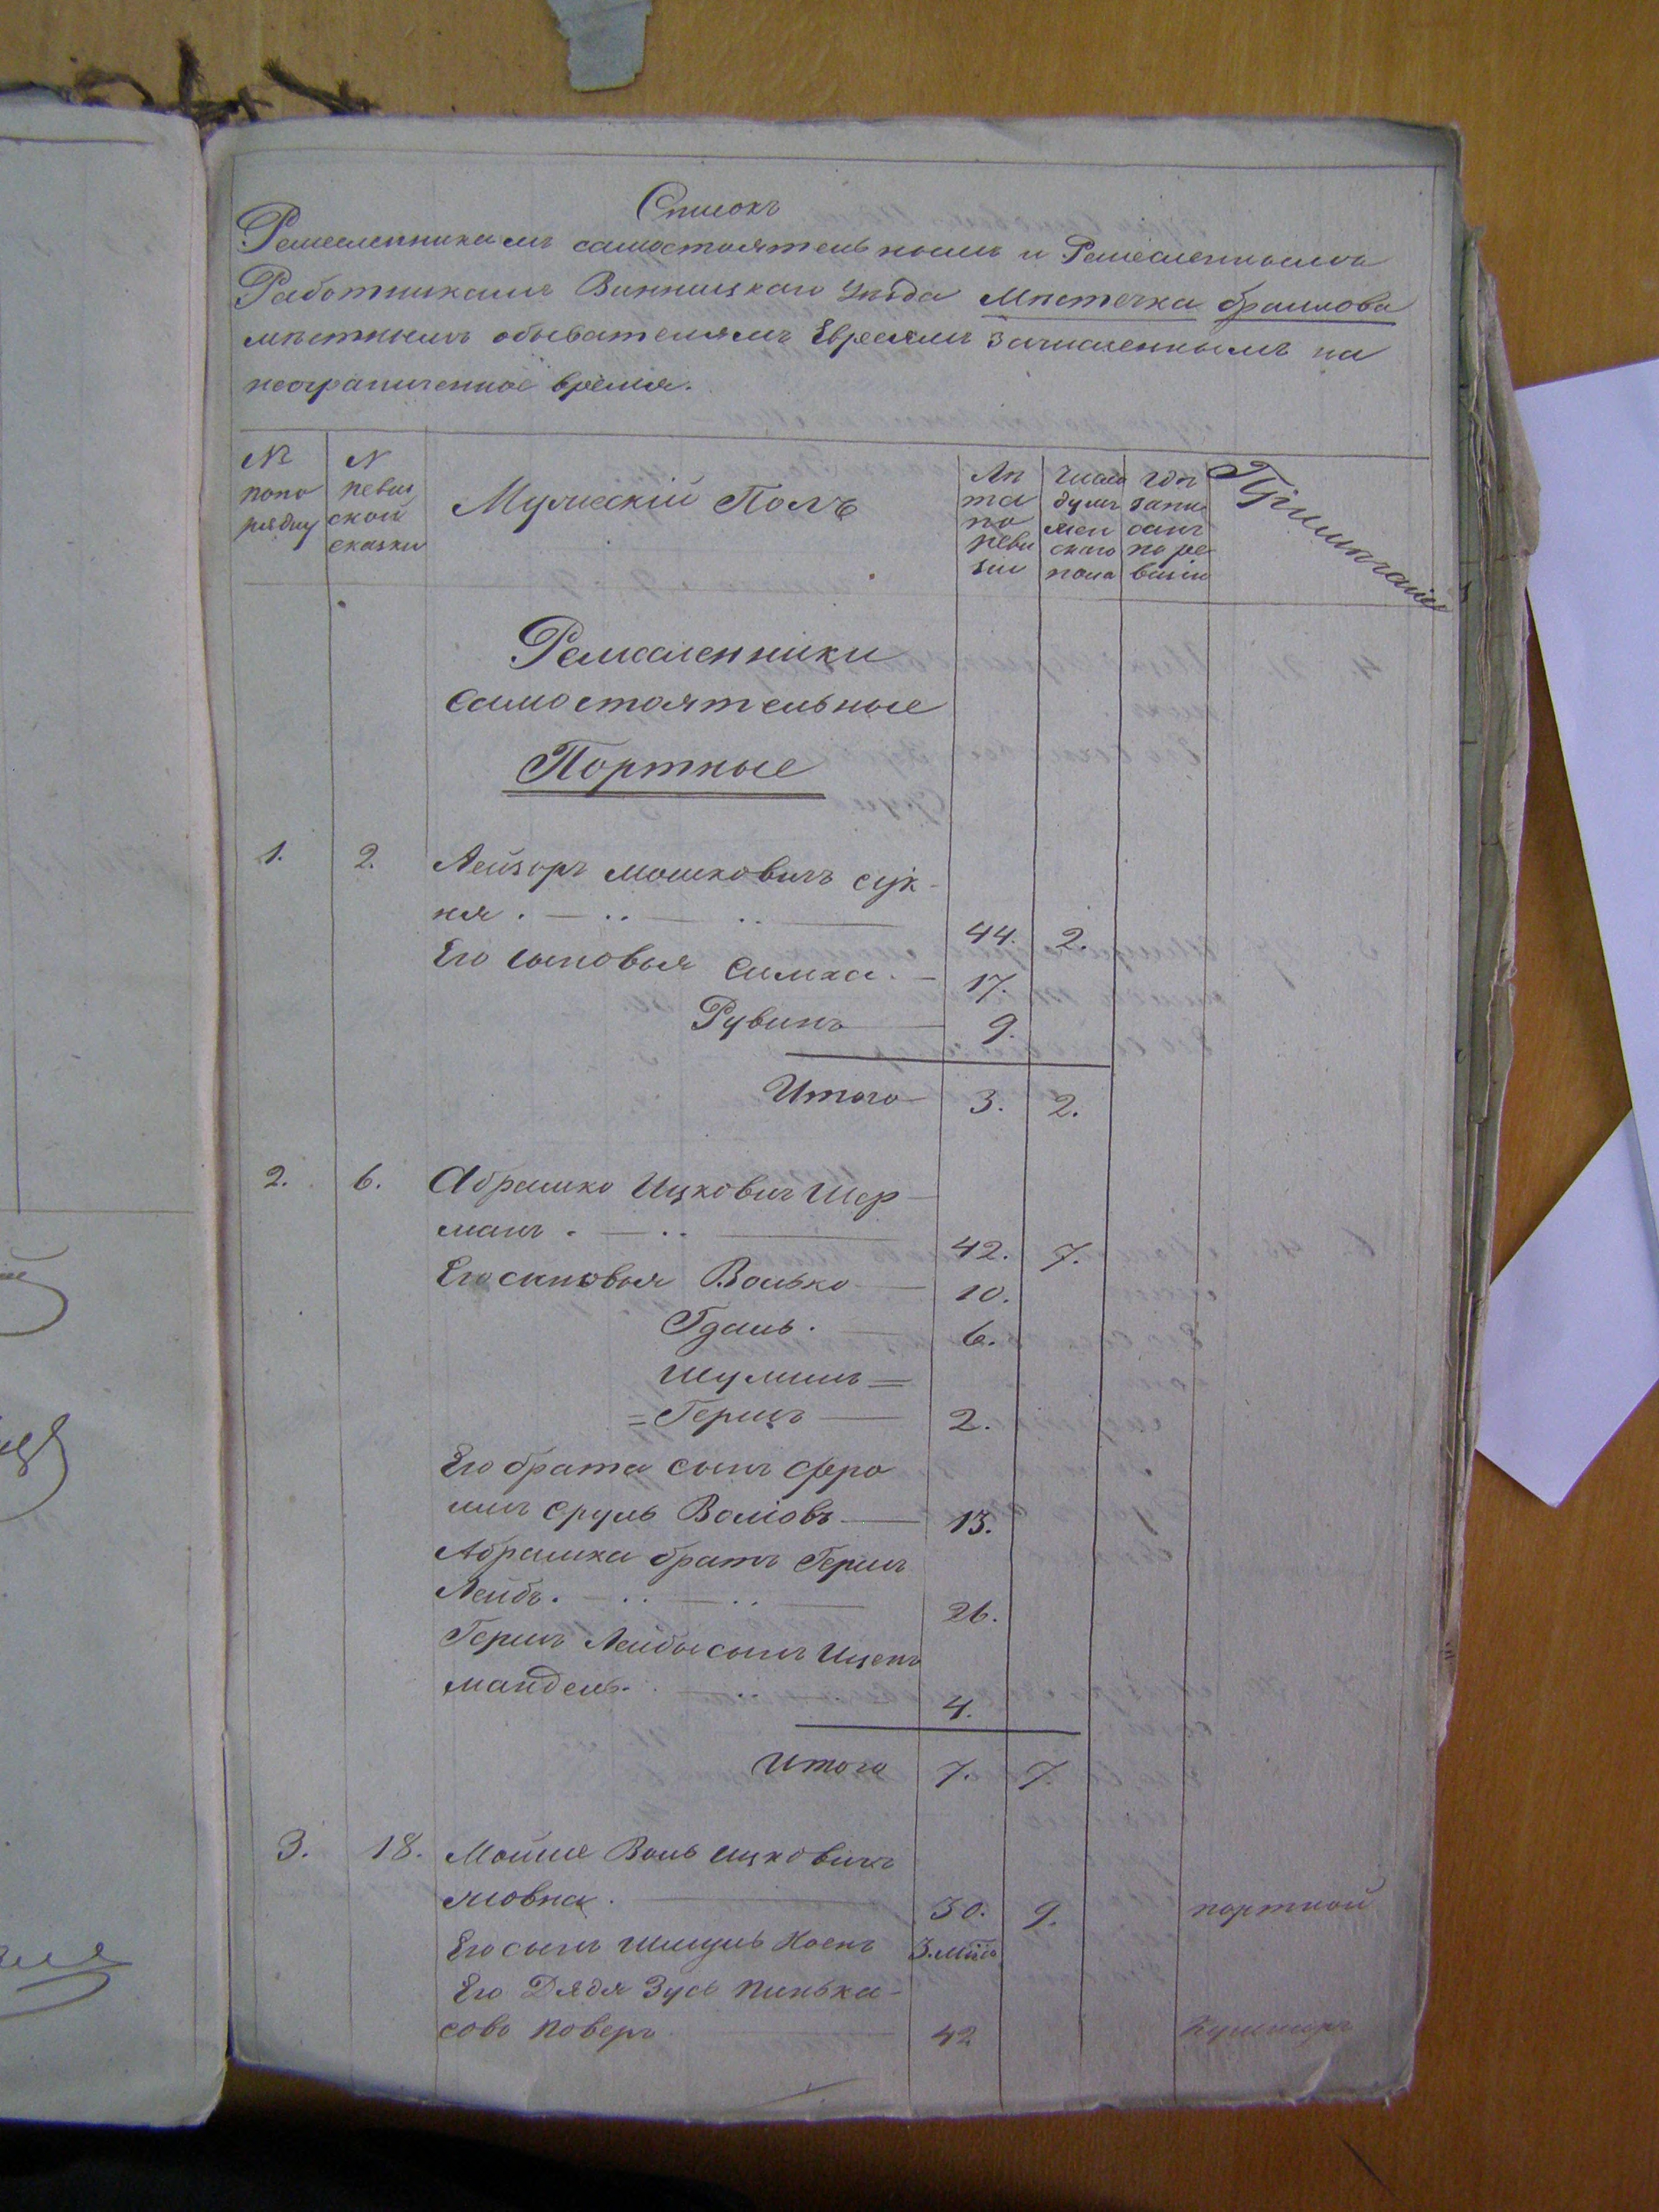 Списокъ
Ремесленникамъ самостоятельнымъ и Ремесленнымъ
Работникамъ Винницкаго Уѣзда Мѣстечка Браилова
мѣстнымъ обывателямъ Евреямъ зачисленнымъ на
неограниченное время.
№ попорядку
N ревизской сказки
Мужескій Полъ
Лѣта по ревизіи
Число душъ женскаго пола
Годъ записанъ по ревизіи
Примѣчаніе
Ремесленники
самостоятельные
Портные
1. 2. Лейзоръ Мошковичъ Сук-
ня. 44. 2.
Его сыновья Симха. 17.
Рувинъ 9.
Итого 3. 2.
2. 6. Абрамко Ицковичъ Шер-
манъ. 42. 7.
Его сыновья Волько 10.
Гдаль. 6.
Шулимъ =
= Гершъ 2.
Его брата сынъ Фро
имъ Сруль Волковъ 13.
Абрамка братъ Гершъ
Лейбъ. 26.
Гершъ Лейбы сынъ Иценъ
мандель. 4.
Итого 7. 7.
3. 18. Мойше Воль Ицковичъ
30. 9. портной
Его сынъ Шмуль 3. мѣс.
Его Дядя Зусь Пинька-
сово Поверъ 42 Кушниръ